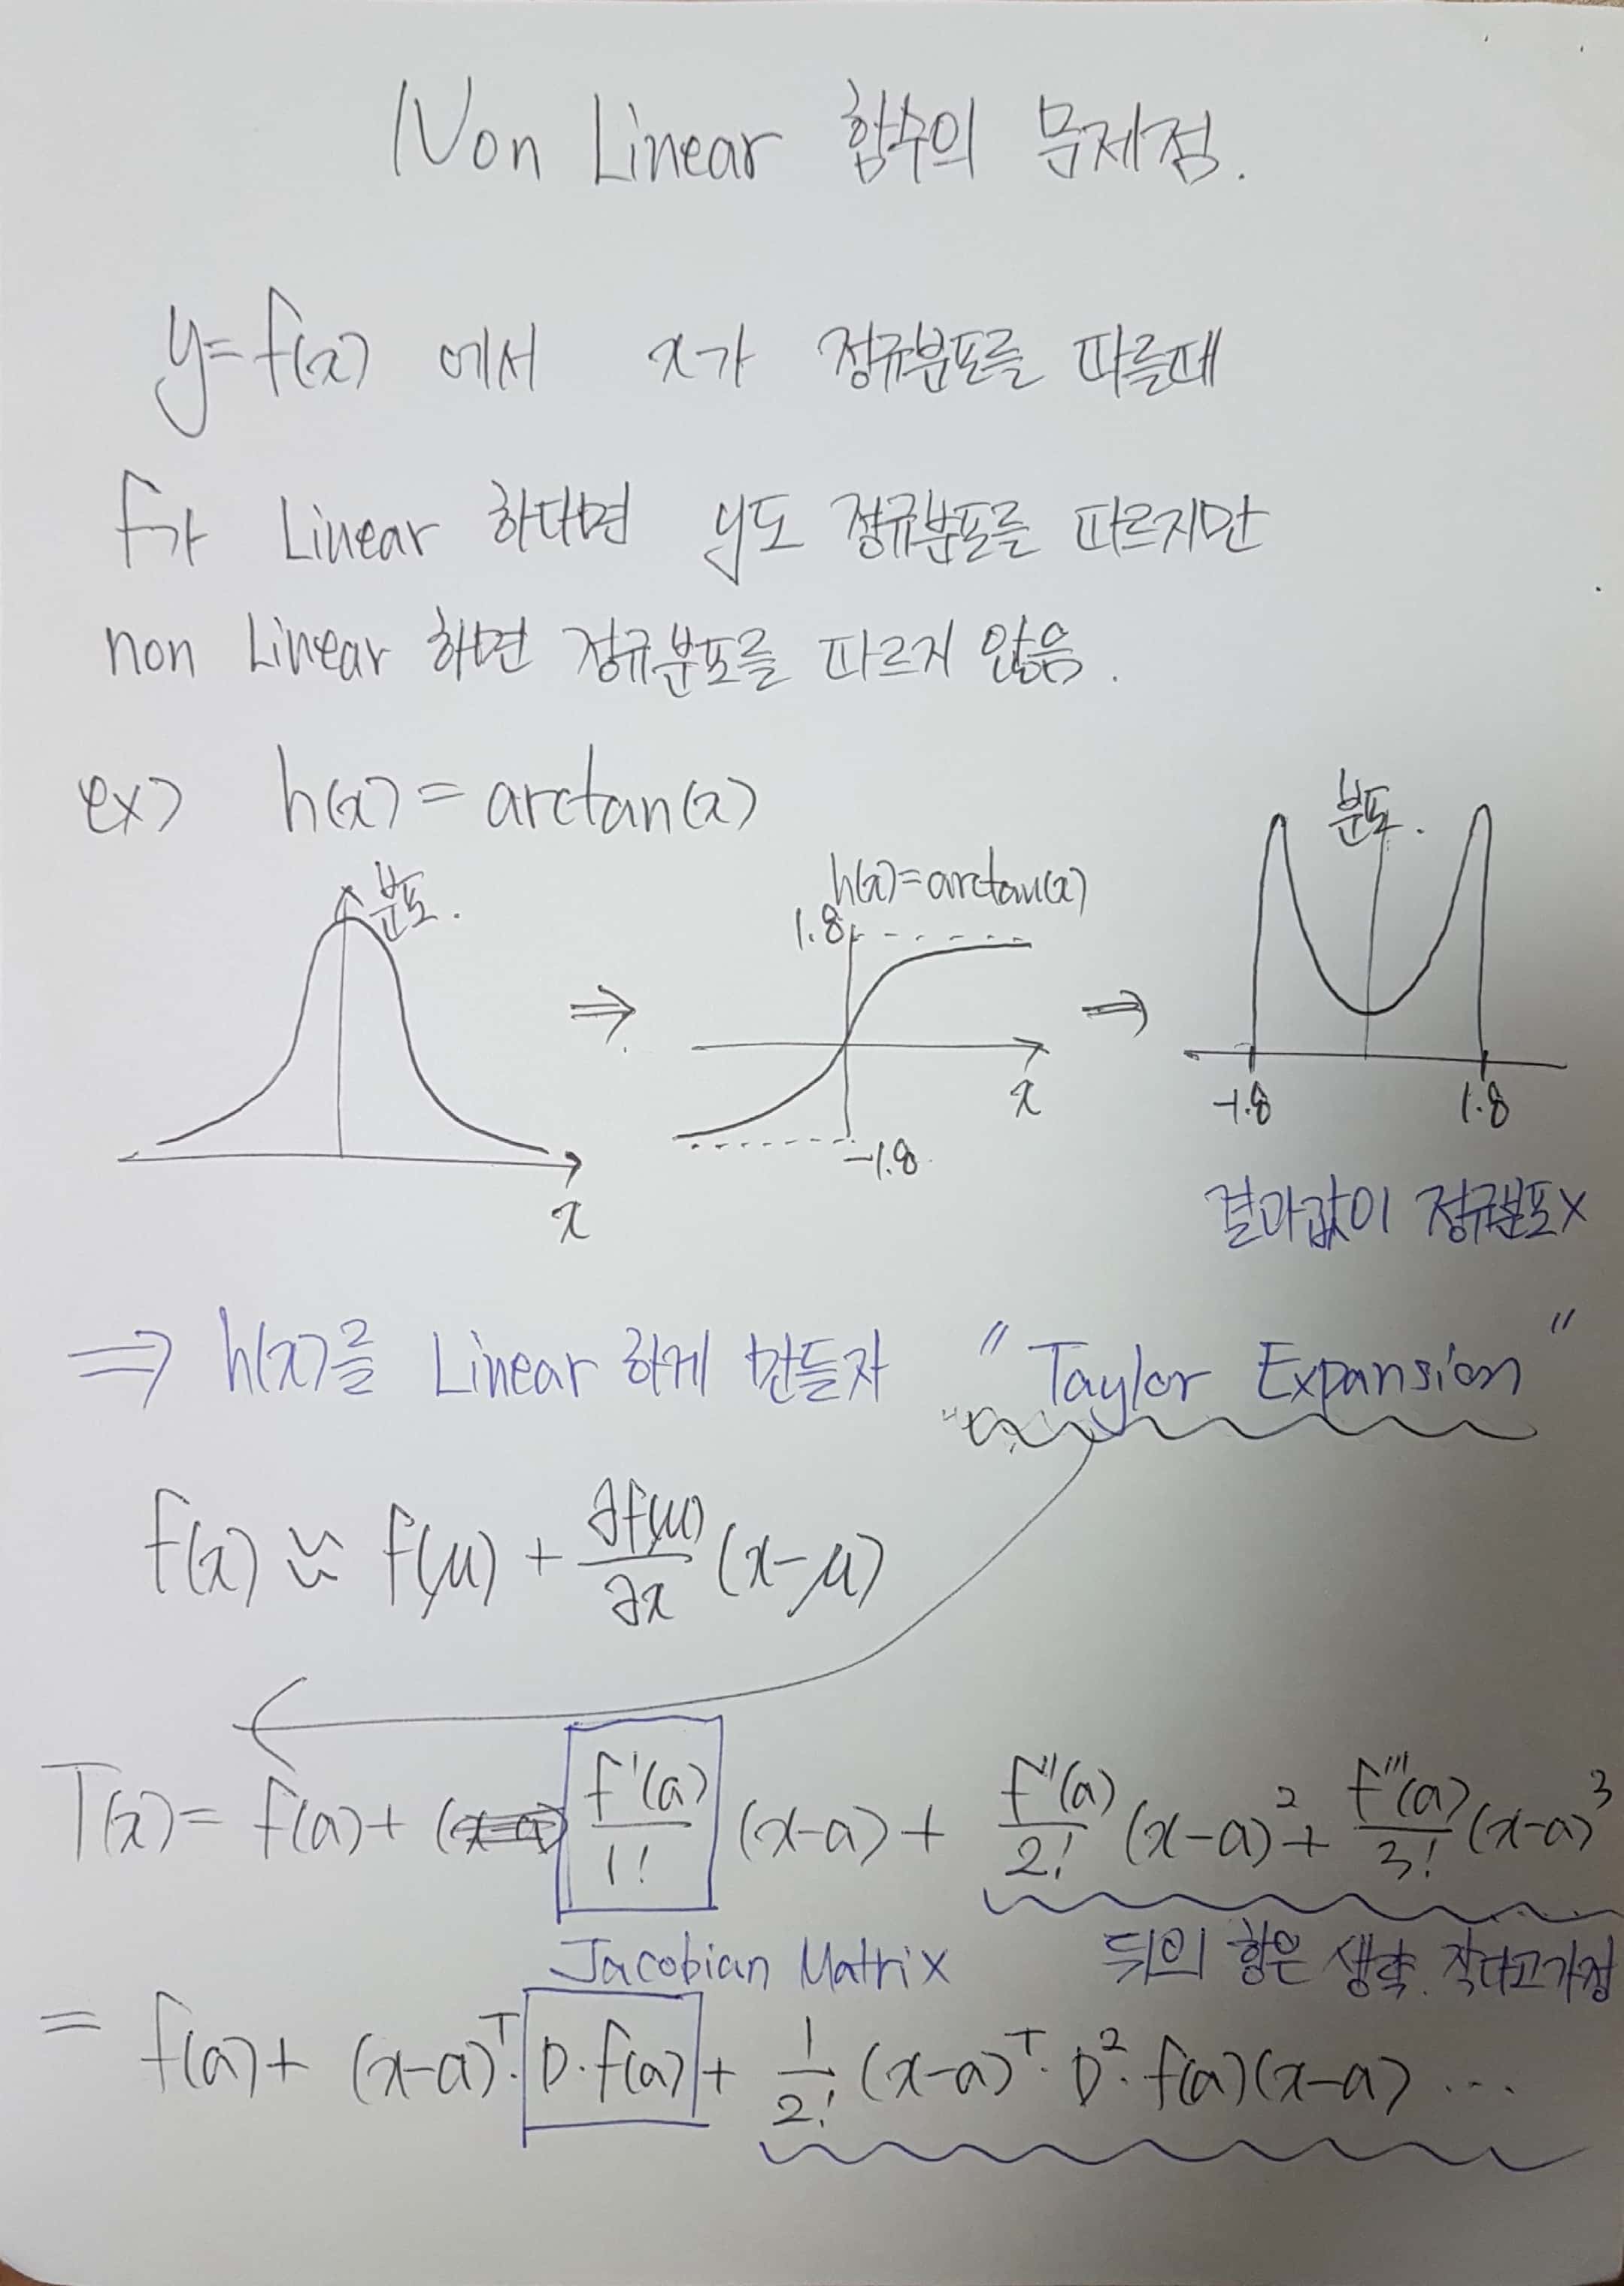 Non Linear 함수의 문제점.
y=f(x) 에서 x가 정규분포를 따를때
f가 Linear 하다면 y도 정규분포를 따르지만
non Linear 하면 정규분포를 따르지 않음.
ex) h(x) = arctan(x)
분포.
x
h(x)=arctan(x)
1.8
x
-1.8
분포.
-1.8 1.8
결과값이 정규분포x
⇒ h(x)를 Linear 하게 만들자 "Taylor Expansion"
f(x) ≈ f(μ) + ∂f(μ)/∂x (x-μ)
T(x) = f(a) + f'(a)/1! (x-a) + f''(a)/2! (x-a)² + f'''(a)/3! (x-a)³
Jacobian Matrix 뒤의 항은 생략. 작다고가정
= f(a) + (x-a)ᵀ· D·f(a) + 1/2! (x-a)ᵀ· D²·f(a)(x-a) ...